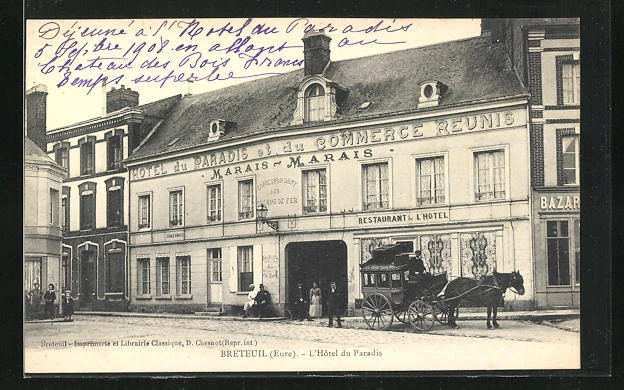 Déjeuné à l'Hotel du Paradis
5 Sept bre 1908 en allant au
Chateau des Bois Francs
temps superbe
HOTEL DU PARADIS et du COMMERCE REUNIS
MARAIS - MARAIS
CORRESPONDANT
DES
CHEMINS DE FER
RESTAURANT DE L'HOTEL
BAZAR
Breteuil - Imprimerie et Librairie Classique, D. Chesnot (Repr. int)
BRETEUIL (Eure). - L'Hôtel du Paradis